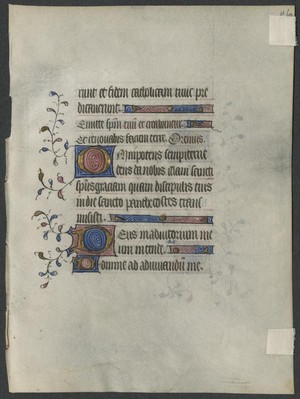 runt et fidem catholicam tuic pre
dicaverunt.
Emitte spm tuu et creabuntur.
Et renovabis faciem terre. Oremus.
Omnipotens sempiterne
deus da nobis illam sancti
spus graciam quam discipulis tuis
in die sancto panthecostes trans
misisti.
Deus in adiutorium me
um intende.
Domine ad adiuvandu me.